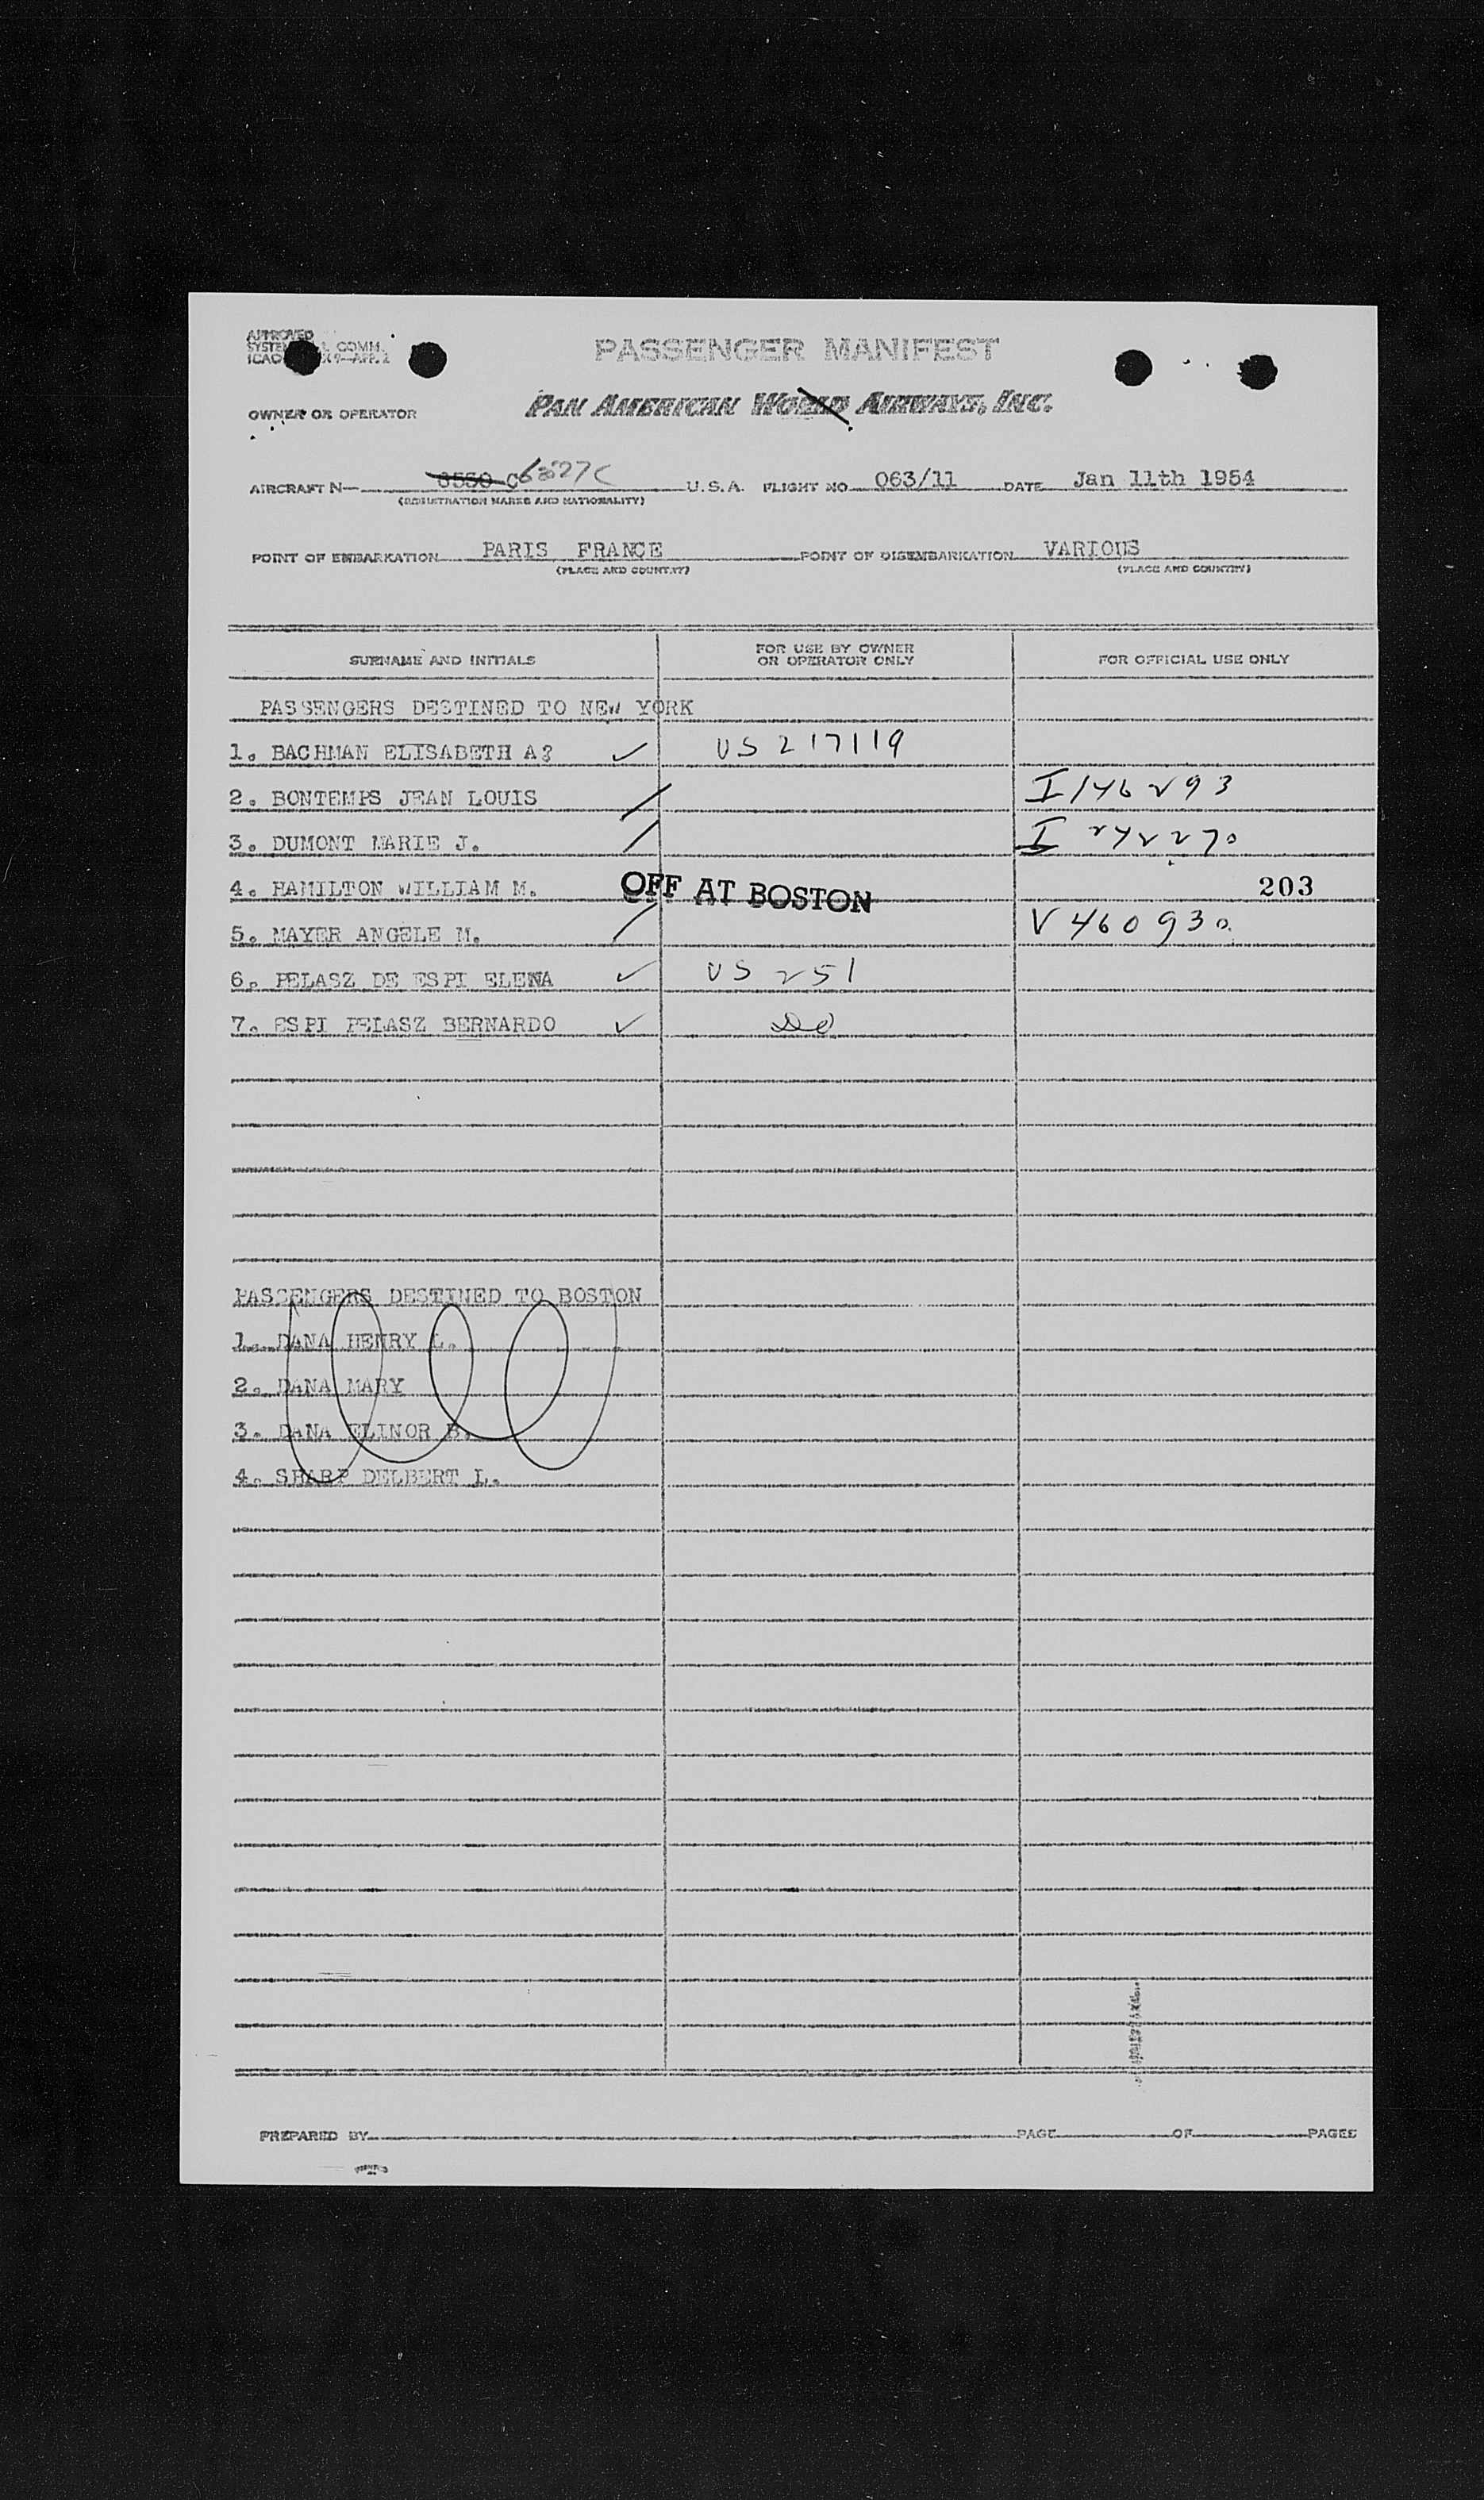 APPROVED
OWNER OR OPERATOR
PASSENGER MANIFEST
PAN AMERICAN WORLD AIRWAYS, INC.
AIRCRAFT N— 6527C U.S.A. FLIGHT NO 063/11 DATE Jan 11th 1954
(REGISTRATION MARKS AND NATIONALITY)
POINT OF EMBARKATION PARIS FRANCE POINT OF DISEMBARKATION VARIOUS
(PLACE AND COUNTRY) (PLACE AND COUNTRY)
SURNAME AND INITIALS FOR USE BY OWNER OR OPERATOR ONLY FOR OFFICIAL USE ONLY
PASSENGERS DESTINED TO NEW YORK
1. BACHMAN ELISABETH A ✓ US 217119
2. BONTEMPS JEAN LOUIS / I 146293
3. DUMONT MARIE J. / I 242270
4. HAMILTON WILLIAM M. OFF AT BOSTON 203
5. MAYER ANGELE M. / V 460930
6. PELASZ DE ESPI ELENA ✓ US 251
7. ESPI PELASZ BERNARDO ✓ Do
PASSENGERS DESTINED TO BOSTON
1. DANA HENRY L.
2. DANA MARY
3. DANA ELINOR B.
4. SHARP DELBERT L.
PREPARED BY PAGE OF PAGES